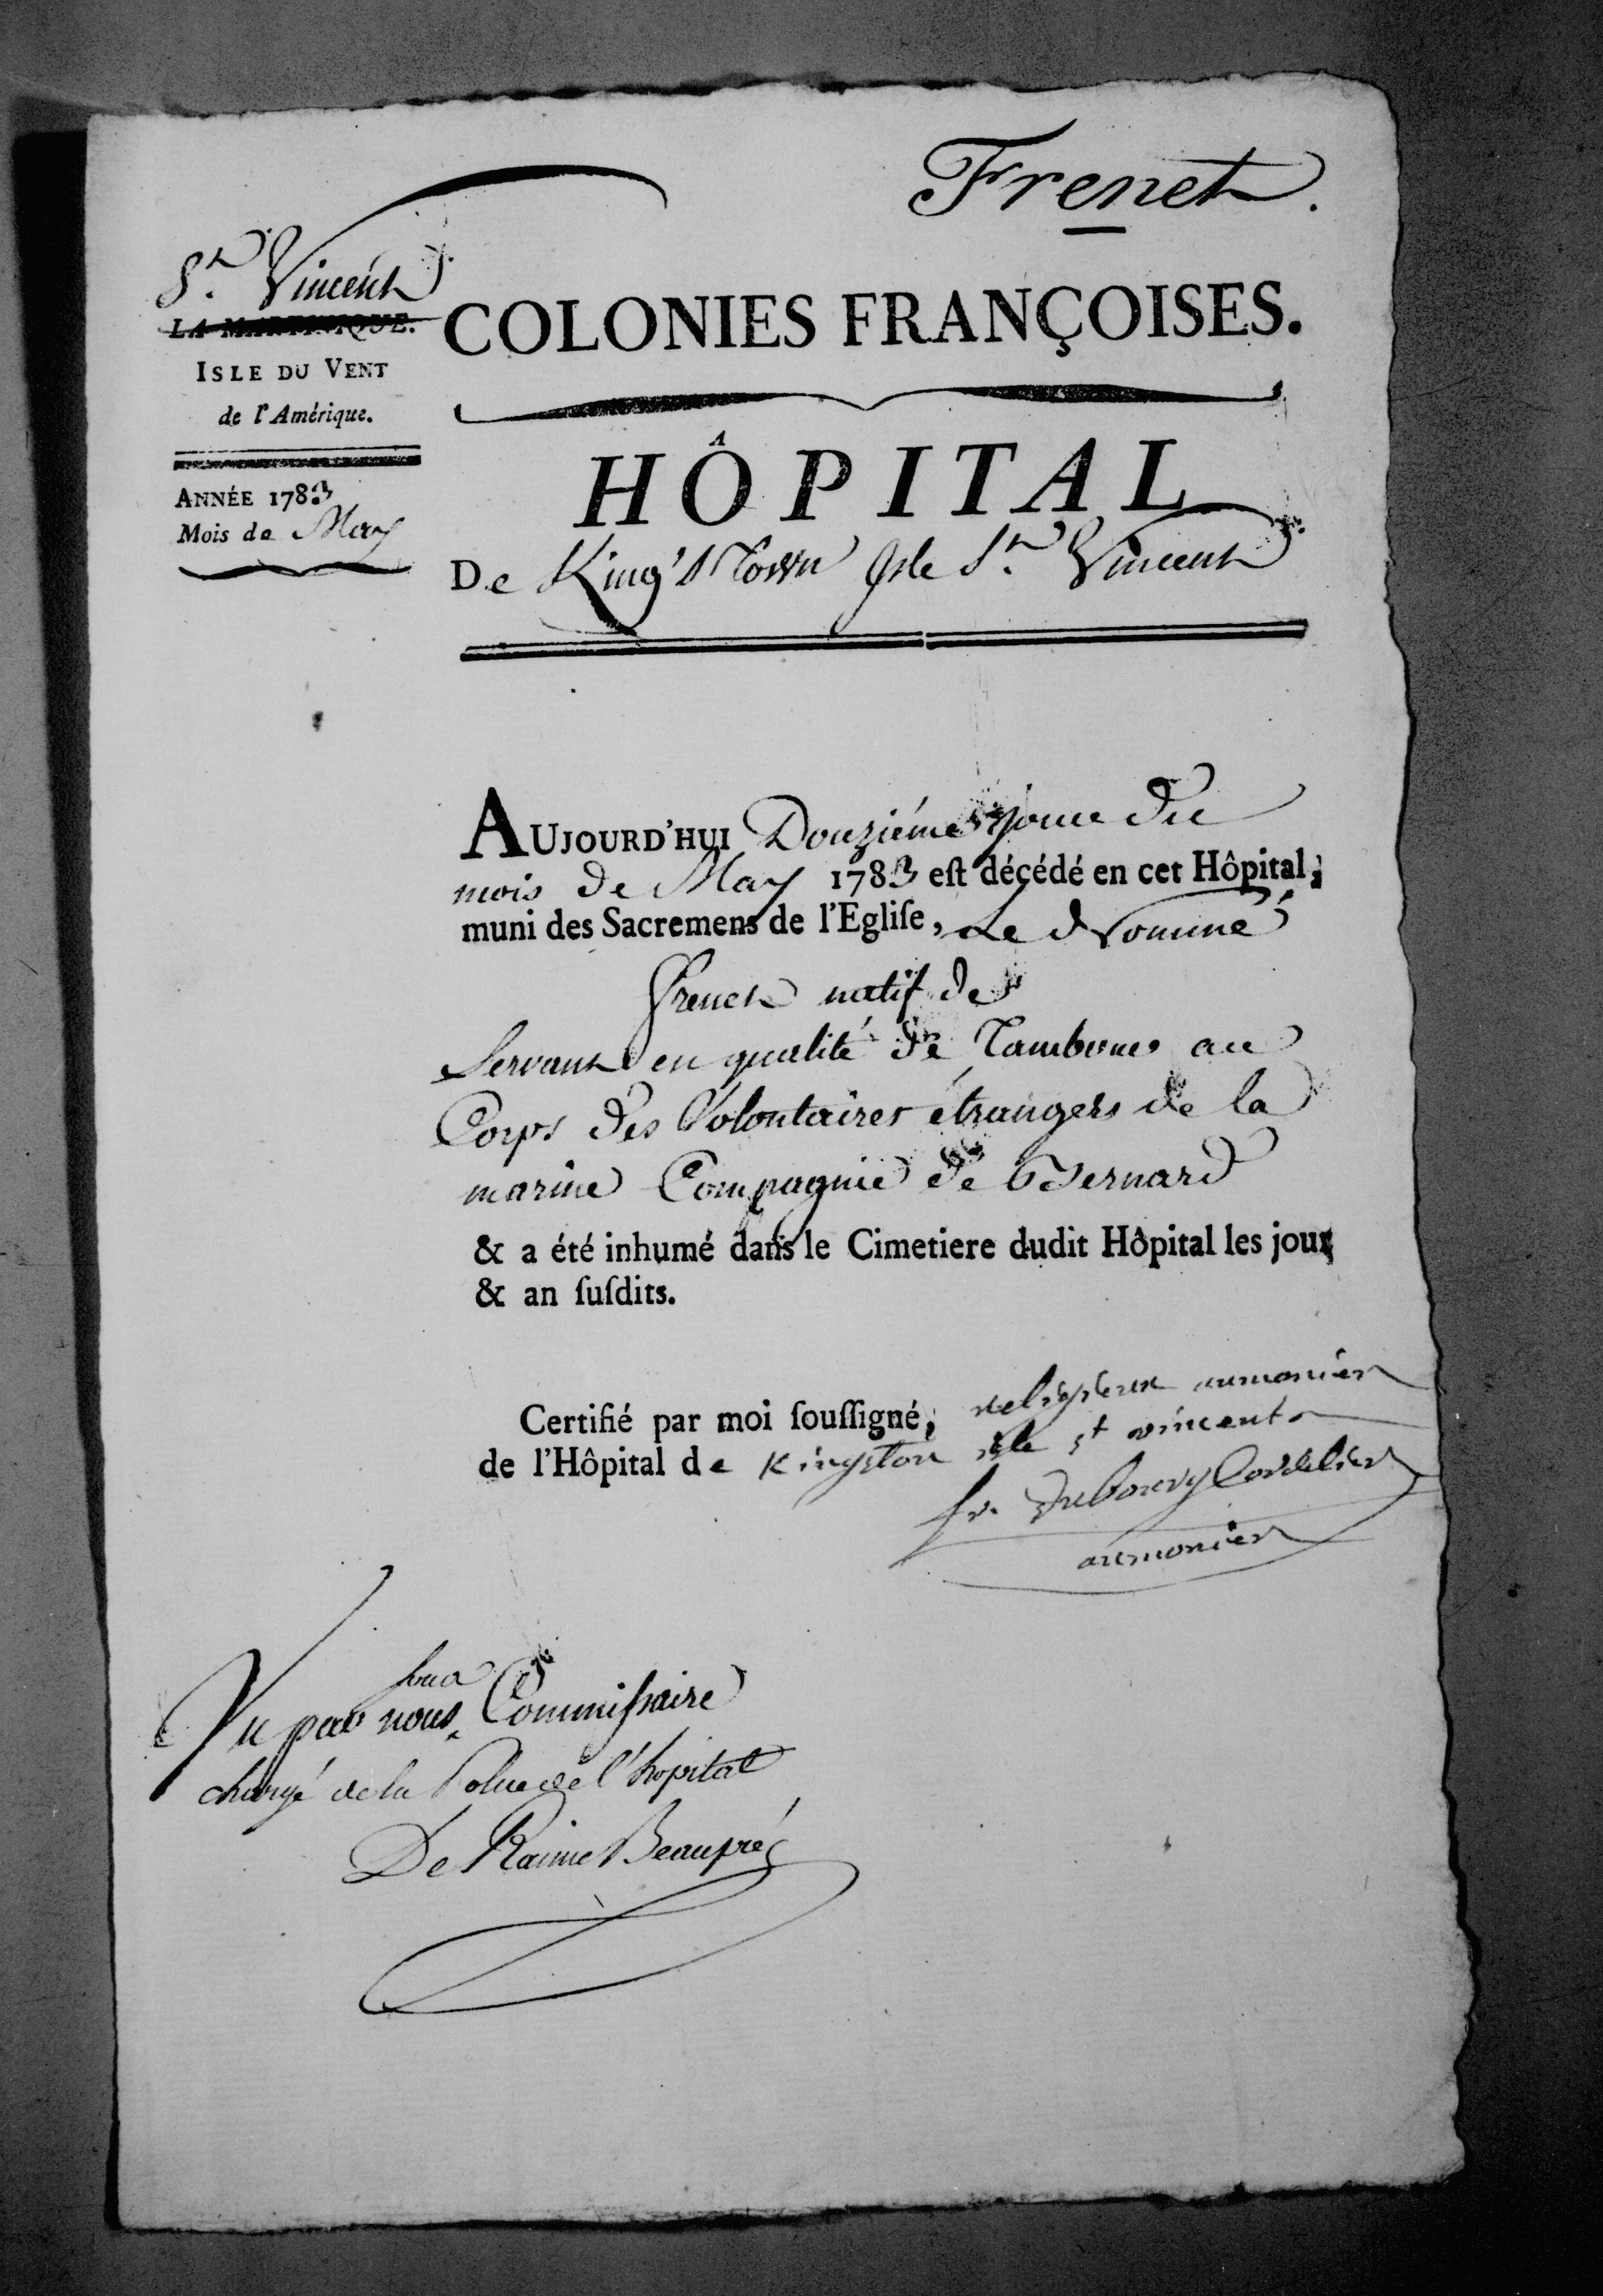 Frenet.
St. Vincent
LA MARTINIQUE.
ISLE DU VENT
de l'Amérique.
COLONIES FRANÇOISES.
ANNÉE 1783
Mois de May
HÔPITAL
De King's Town Isle St. Vincent
AUJOURD'HUI Douziéme jour du
mois de May 1783 eſt décédé en cet Hôpital,
muni des Sacremens de l'Egliſe, Le Nommé
Frenet natif de
Servant en qualité de Tambour au
Corps des Volontaires étrangers de la
marine Compagnie de Bernard
& a été inhumé dans le Cimetiere dudit Hôpital les jour
& an ſuſdits.
Certifié par moi ſouſſigné, religieux aumonier
de l'Hôpital de Kingston isle st vincent
fr. Dubourg Cordelier
aumonier
Vu par nous sous Commissaire
chargé de la Police de l'hopital
De Raime Beaupré